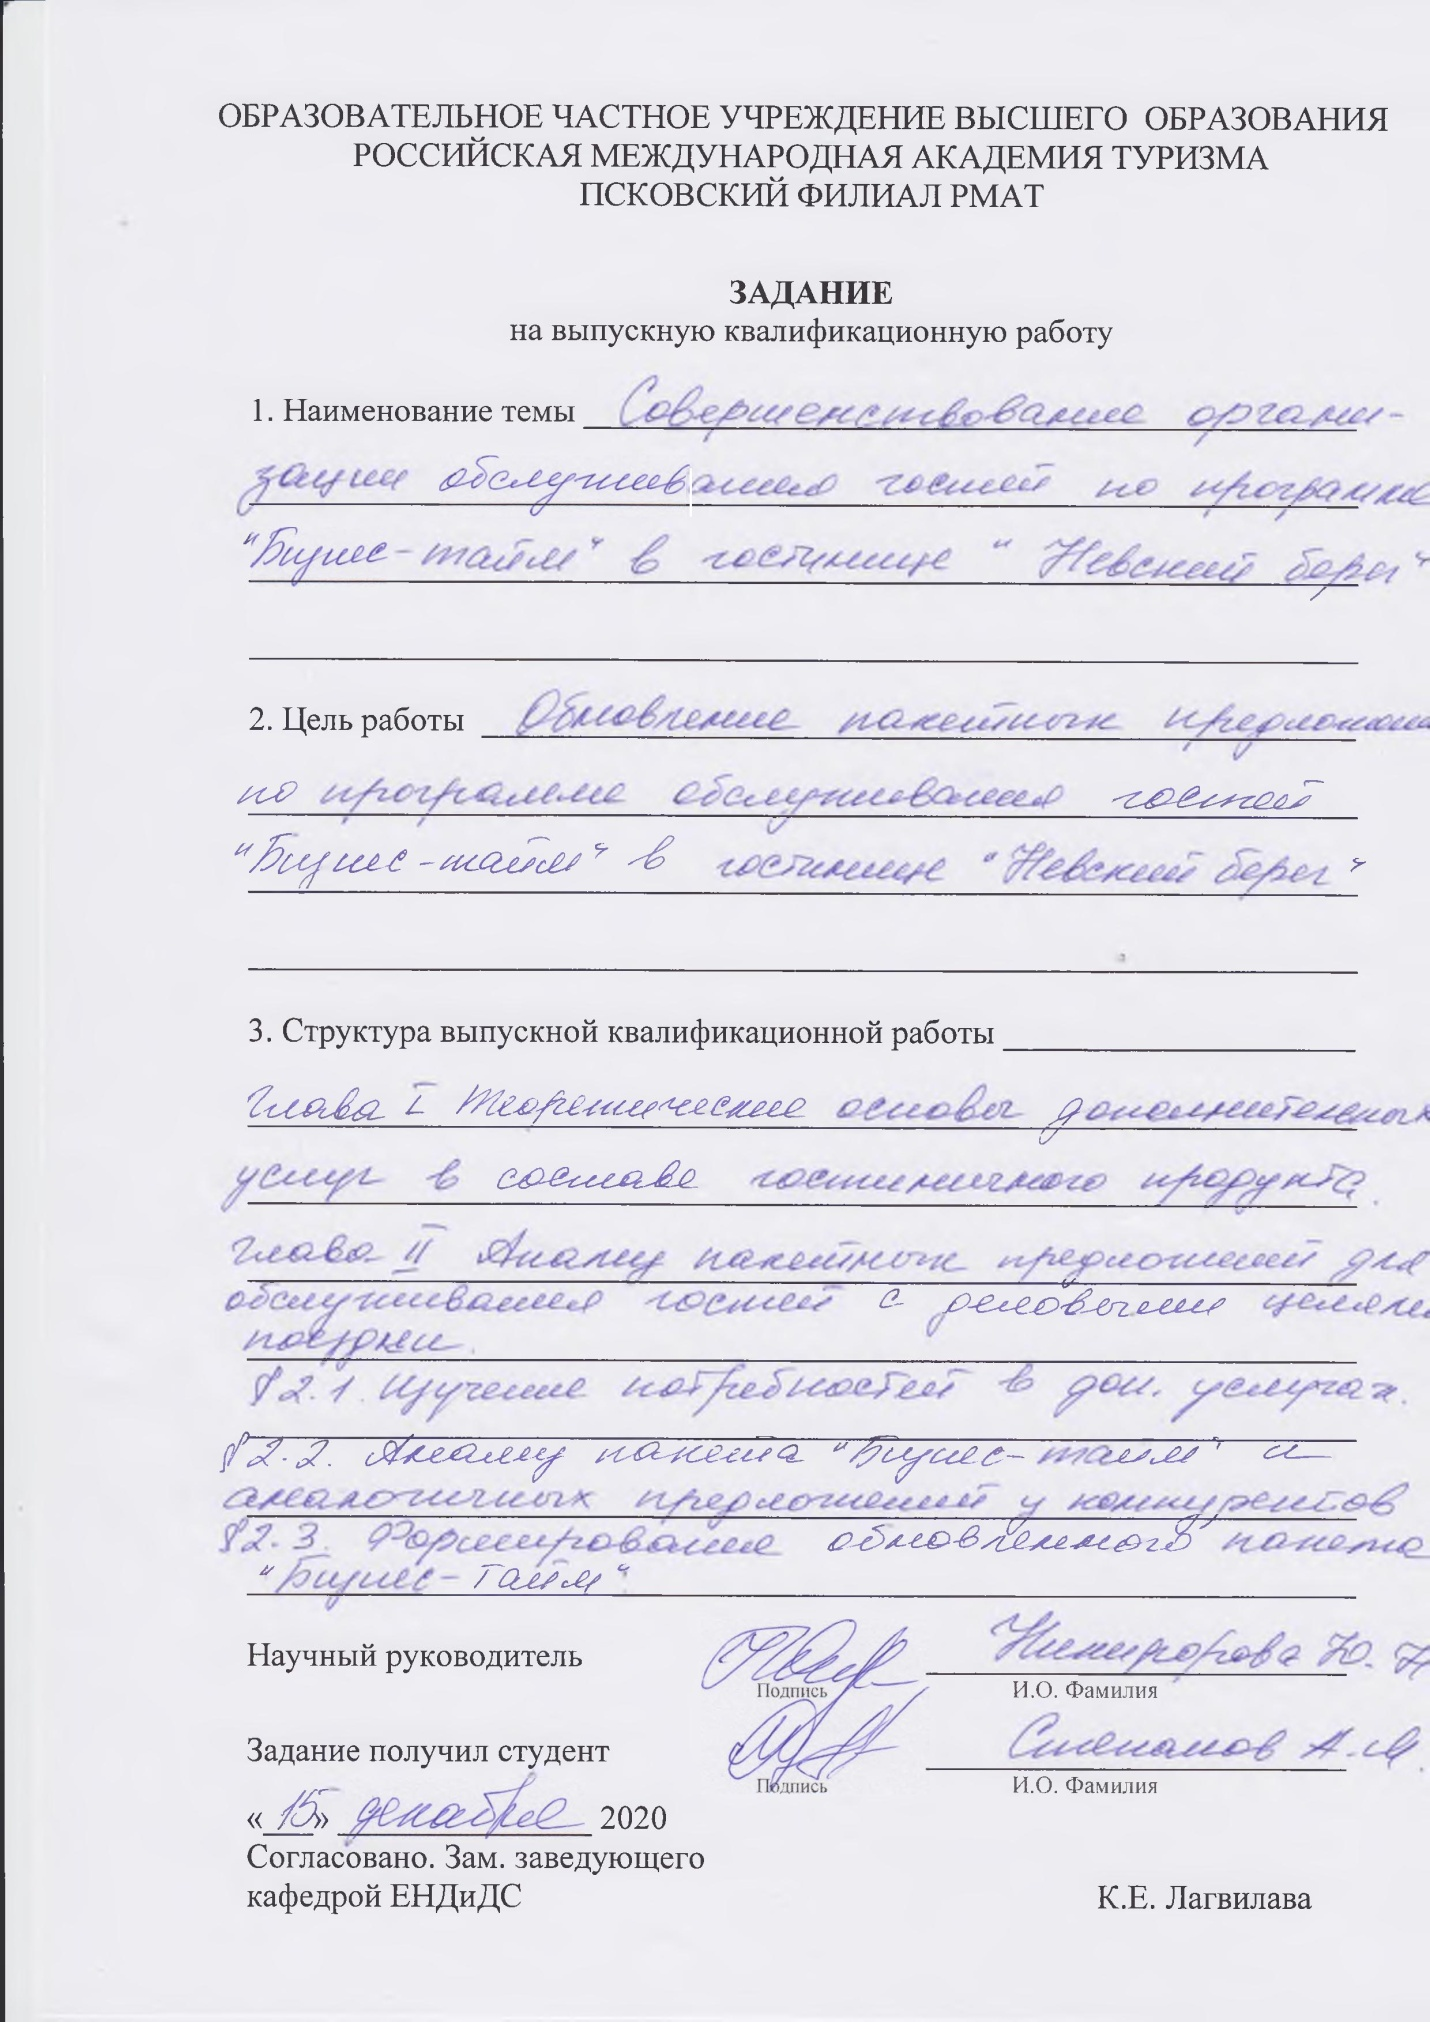 ОБРАЗОВАТЕЛЬНОЕ ЧАСТНОЕ УЧРЕЖДЕНИЕ ВЫСШЕГО ОБРАЗОВАНИЯ
РОССИЙСКАЯ МЕЖДУНАРОДНАЯ АКАДЕМИЯ ТУРИЗМА
ПСКОВСКИЙ ФИЛИАЛ РМАТ
ЗАДАНИЕ
на выпускную квалификационную работу
1. Наименование темы Совершенствование органи-
зации обслуживания гостей по программе
"Бизнес-тайм" в гостинице "Невский берег"
2. Цель работы Обновление пакетных предложений
по программе обслуживания гостей
"Бизнес-тайм" в гостинице "Невский берег"
3. Структура выпускной квалификационной работы
Глава I Теоретические основы дополнительных
услуг в составе гостиничного продукта.
Глава II Анализ пакетных предложений для
обслуживания гостей с деловыми целями
поездки.
§ 2.1. Изучение потребностей в доп. услугах.
§ 2.2. Анализ пакета "Бизнес-тайм" и
аналогичных предложений у конкурентов
§ 2.3. Формирование обновленного пакета
"Бизнес-тайм".
Научный руководитель Никифорова Ю.
Подпись И.О. Фамилия
Задание получил студент Степанов А.М.
Подпись И.О. Фамилия
«15» декабря 2020
Согласовано. Зам. заведующего
кафедрой ЕНДиДС К.Е. Лагвилава